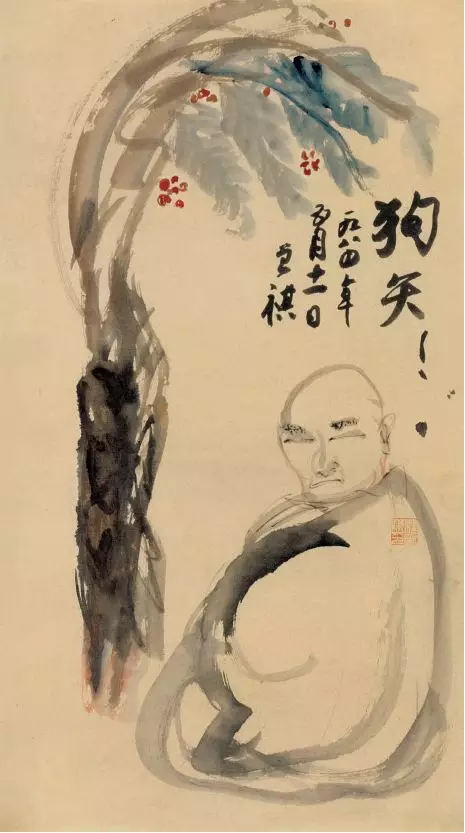 狗矢！
一九八四年
五月十一日
祺